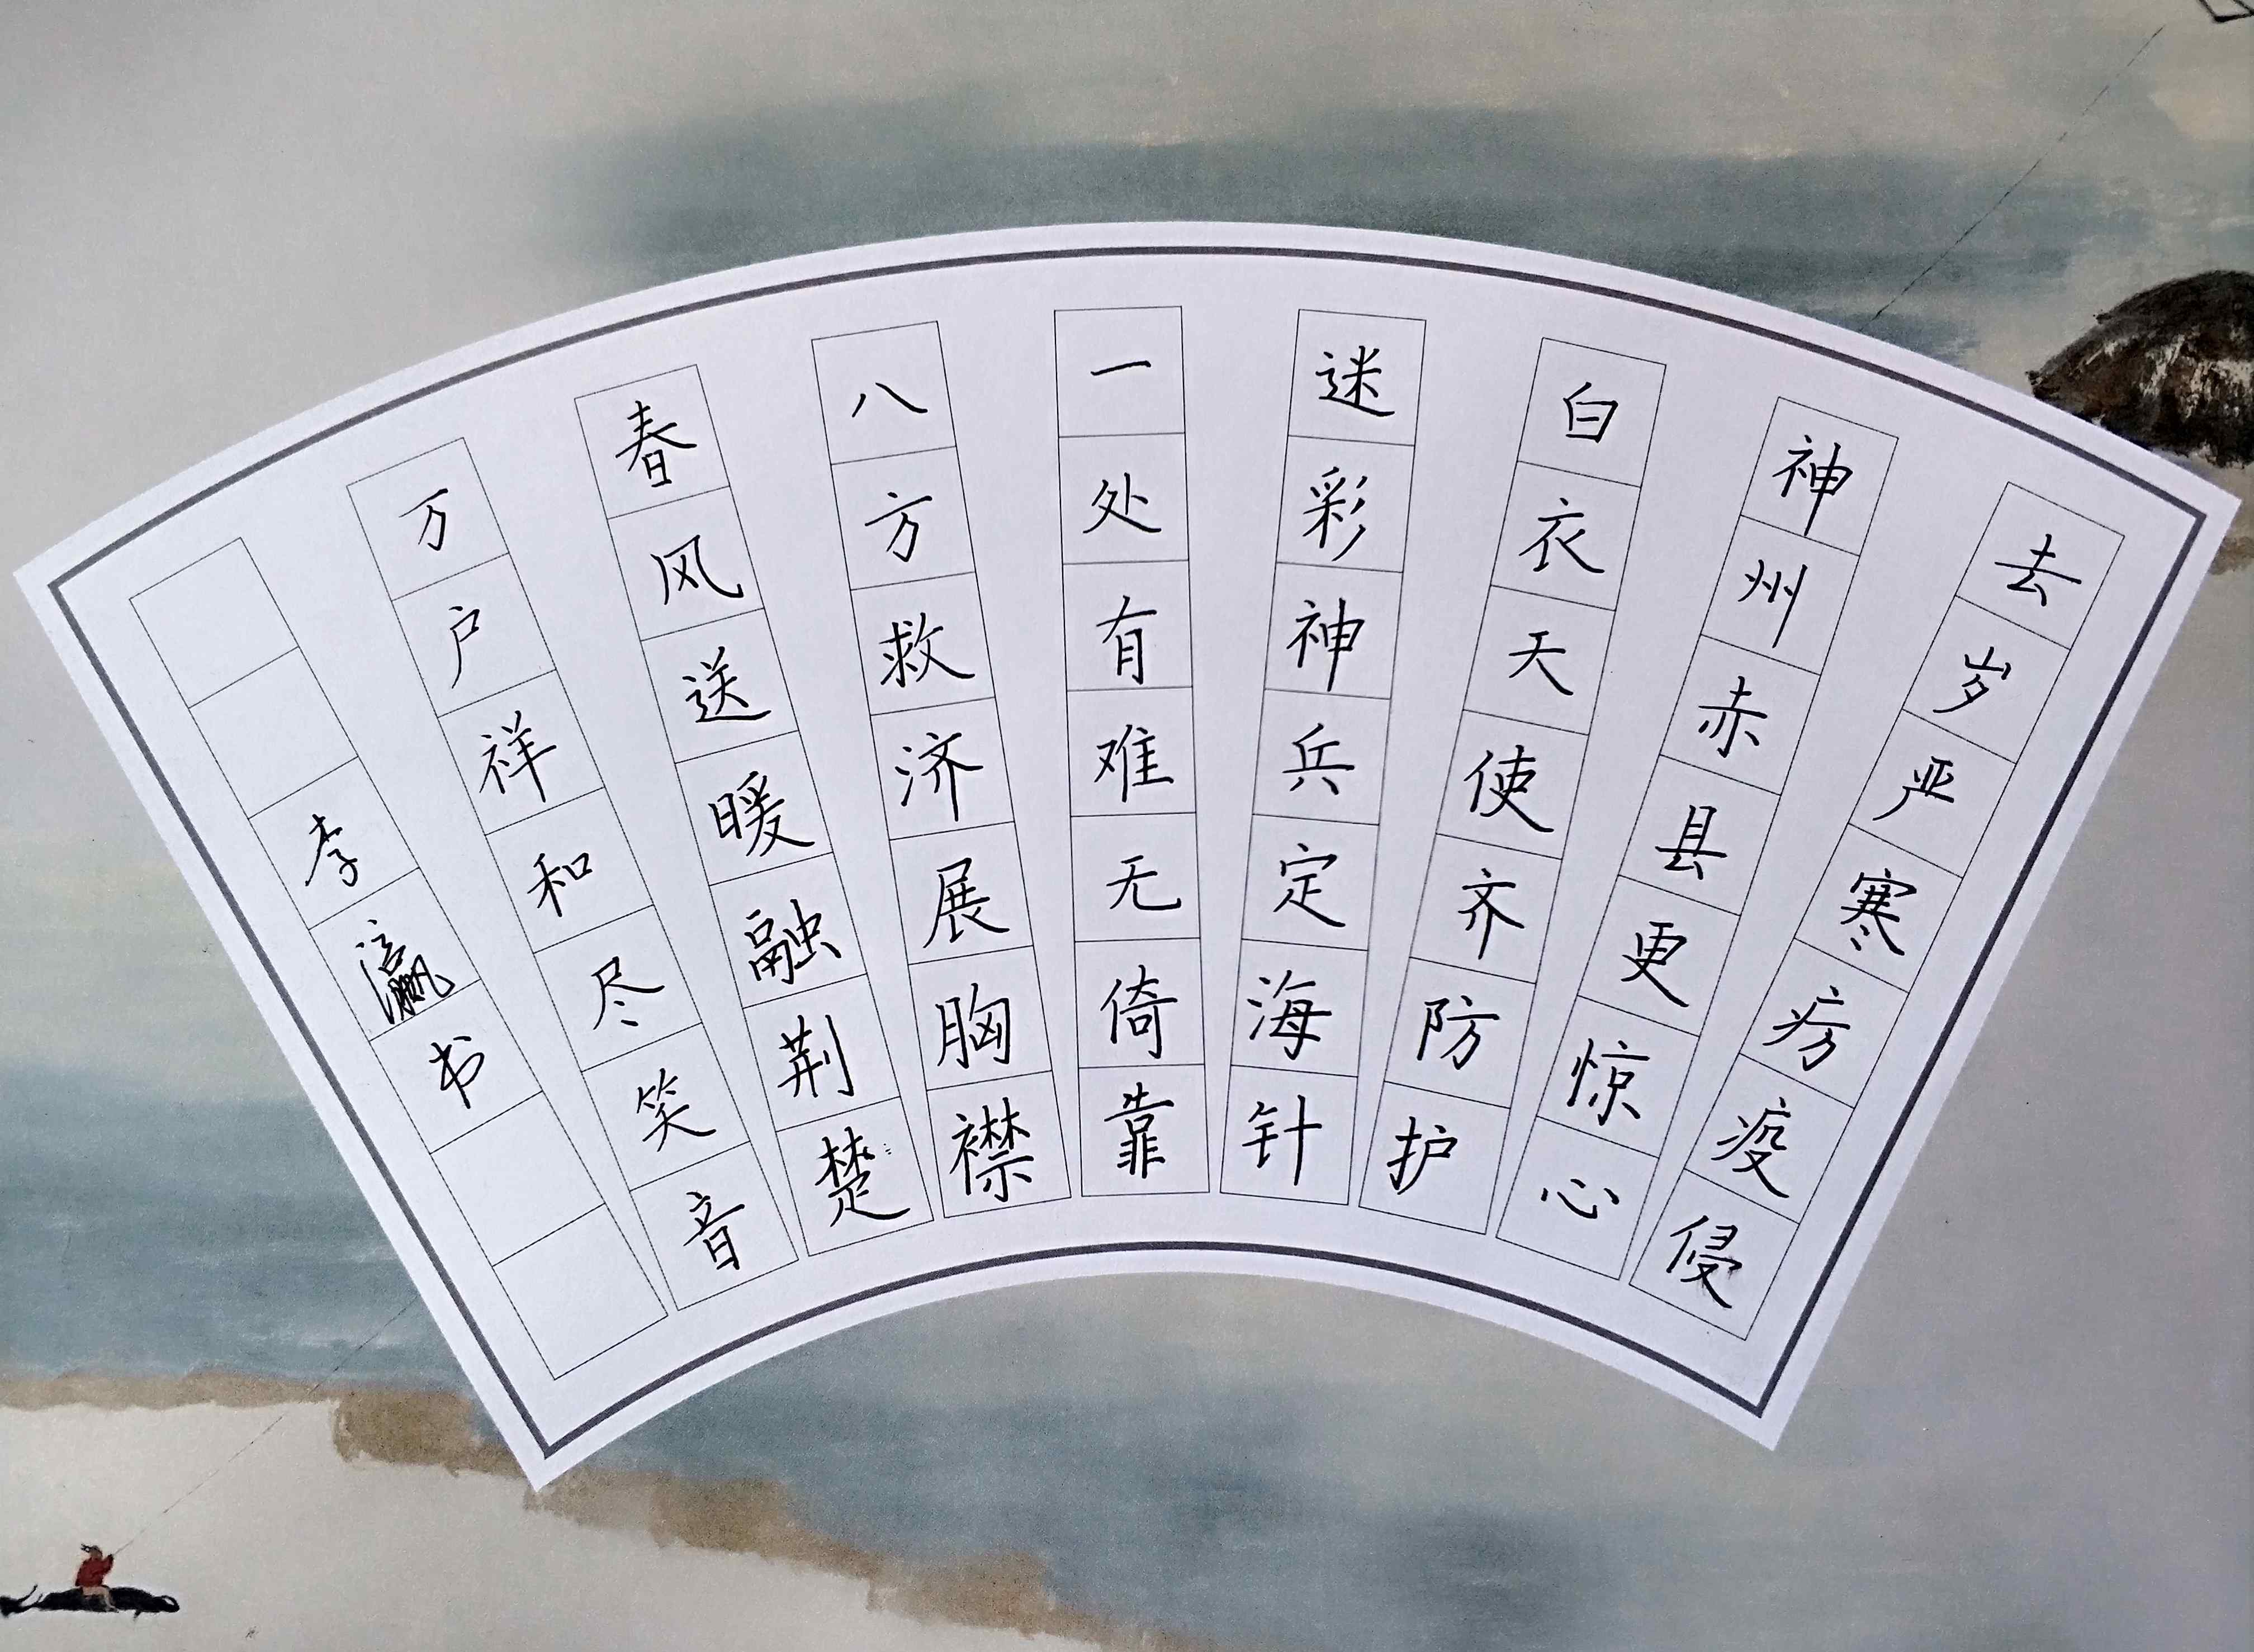 去岁严寒疠疫侵
神州赤县更惊心
白衣天使齐防护
迷彩神兵定海针
一处有难无倚靠
八方救济展胸襟
春风送暖融荆楚
万户祥和尽笑音
李瀛书